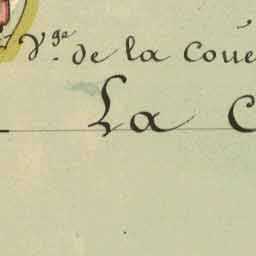 Vge. de la Coué
La C